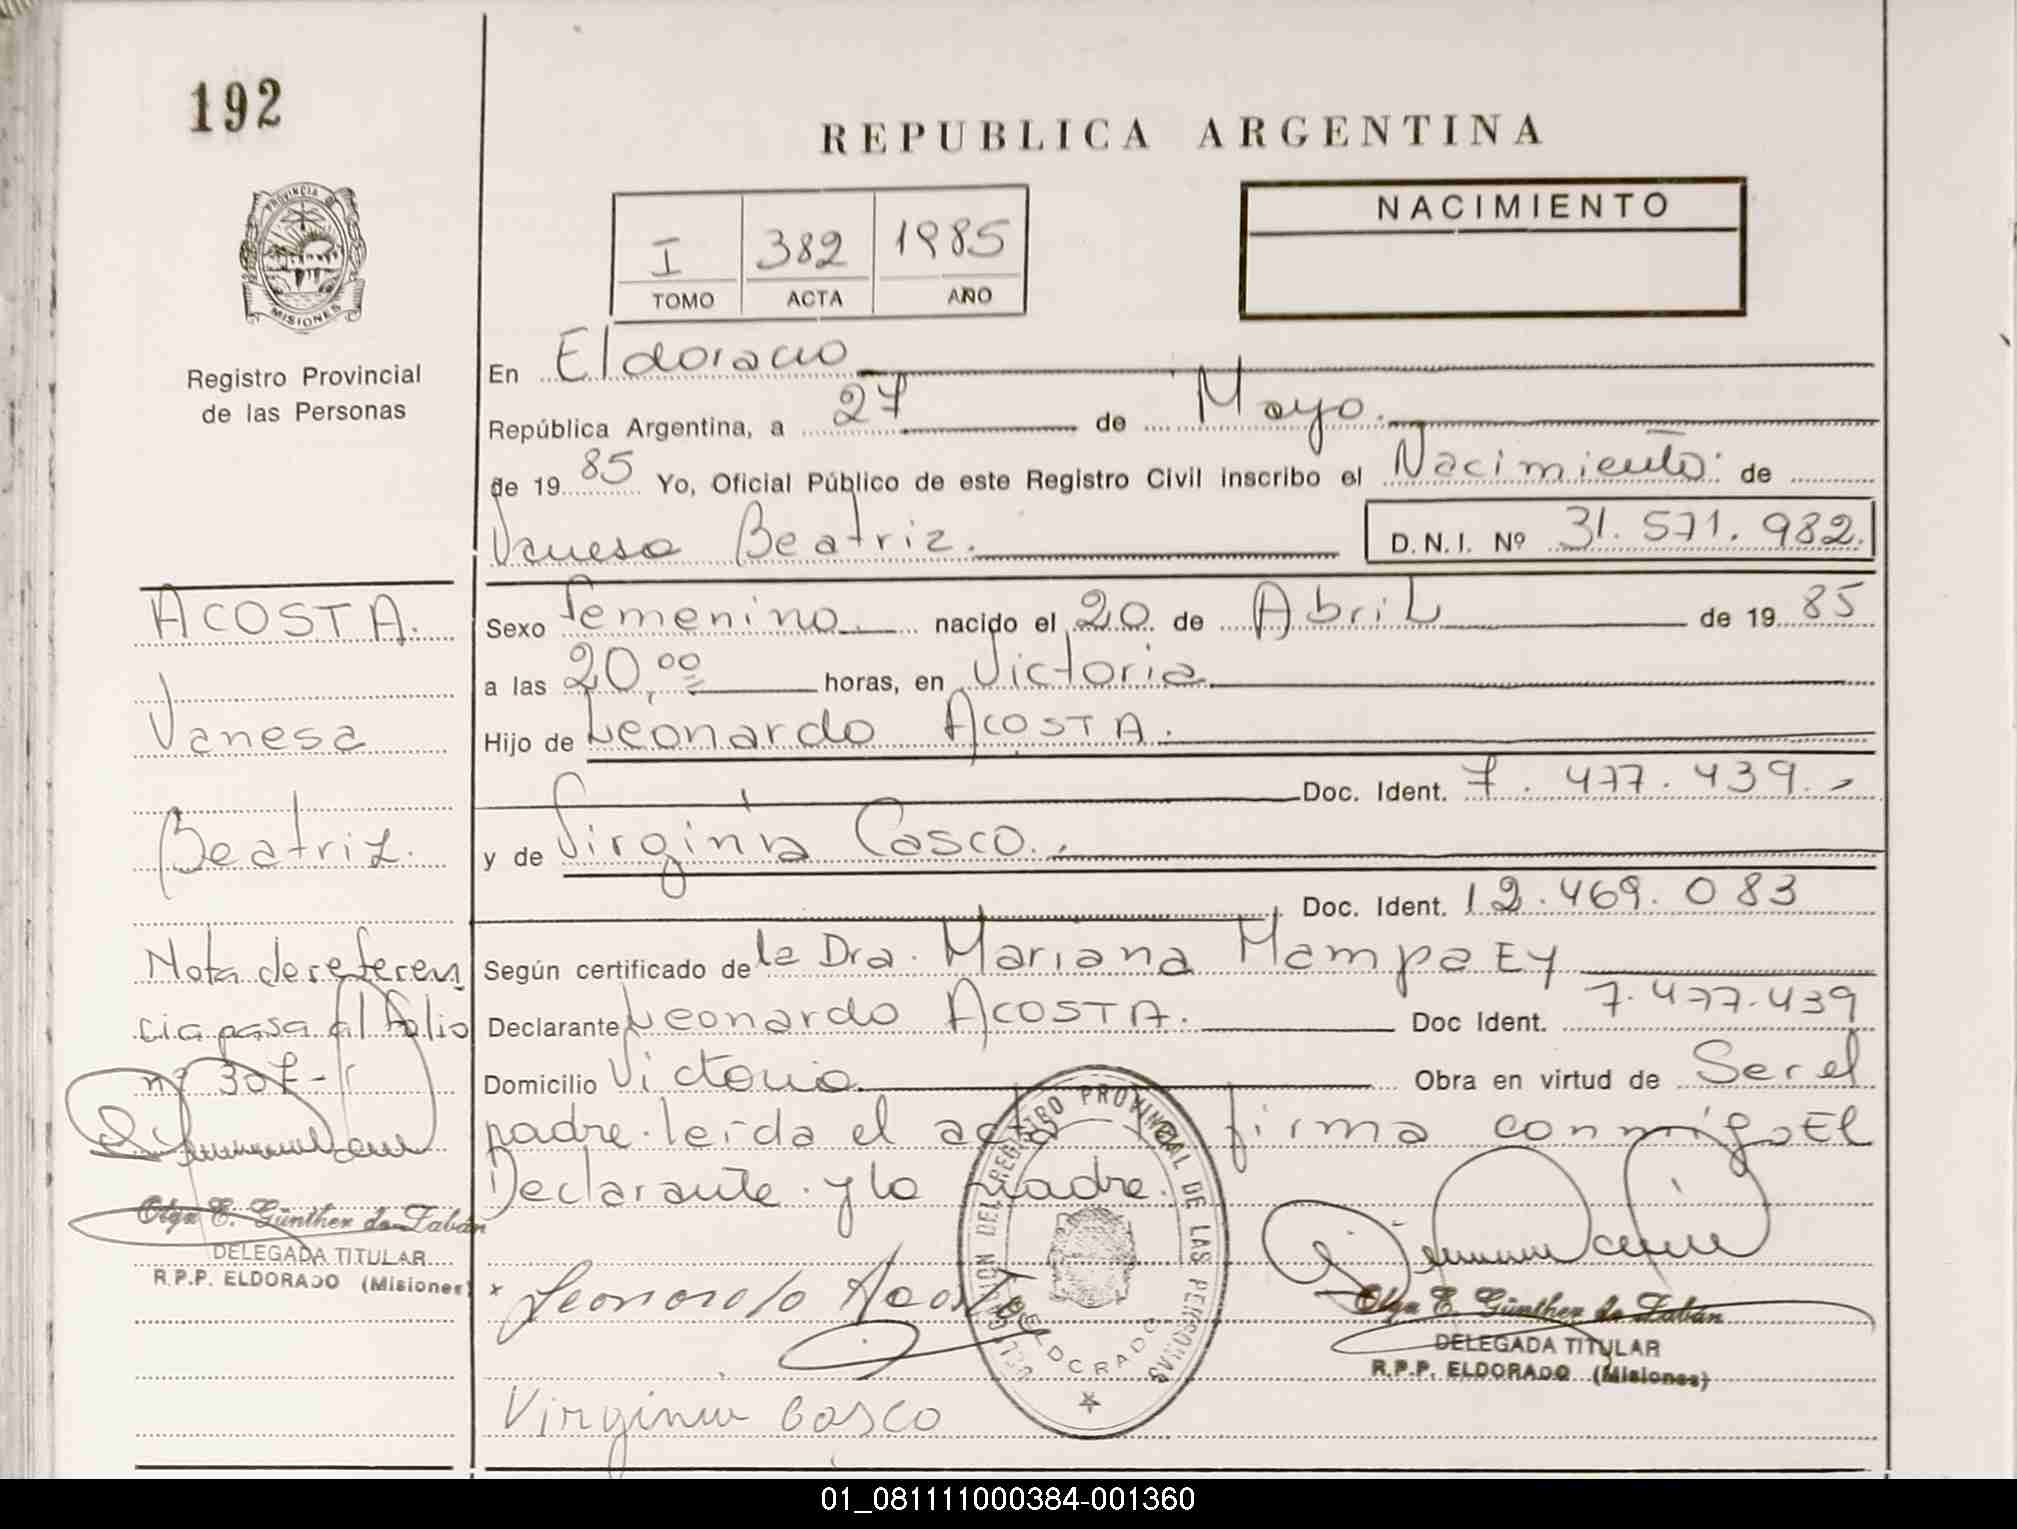 192
REPUBLICA ARGENTINA
PROVINCIA
MISIONES
Registro Provincial
de las Personas
I 382 1985
TOMO ACTA AÑO
NACIMIENTO
En Eldorado
República Argentina, a 27 de Mayo.
de 19 85 Yo, Oficial Público de este Registro Civil inscribo el Nacimiento de
Vanesa Beatriz. D.N.I. Nº 31.571.982.
ACOSTA.
Vanesa
Beatriz.
Nota de referen
cia pasa al folio
nº 307-
Olga E. Günther de Zabán
DELEGADA TITULAR
R.P.P. ELDORADO (Misiones)
Sexo Femenino nacido el 20 de Abril de 19 85
a las 20,00 horas, en Victoria
Hijo de Leonardo ACOSTA.
Doc. Ident. 7.477.439.-
y de Virginia Casco.
Doc. Ident. 12.469.083
Según certificado de la Dra. Mariana Mampaey
Declarante Leonardo ACOSTA. Doc Ident. 7.477.439
Domicilio Victoria Obra en virtud de Ser el
padre. leída el acta la firma conmigo El
Declarante y la madre.
Leonardo Acosta
Virginia Casco
DEL REGISTRO PROVINCIAL DE LAS PERSONAS
ELDORADO
Olga E. Günther de Zabán
DELEGADA TITULAR
R.P.P. ELDORADO (Misiones)
01_081111000384-001360